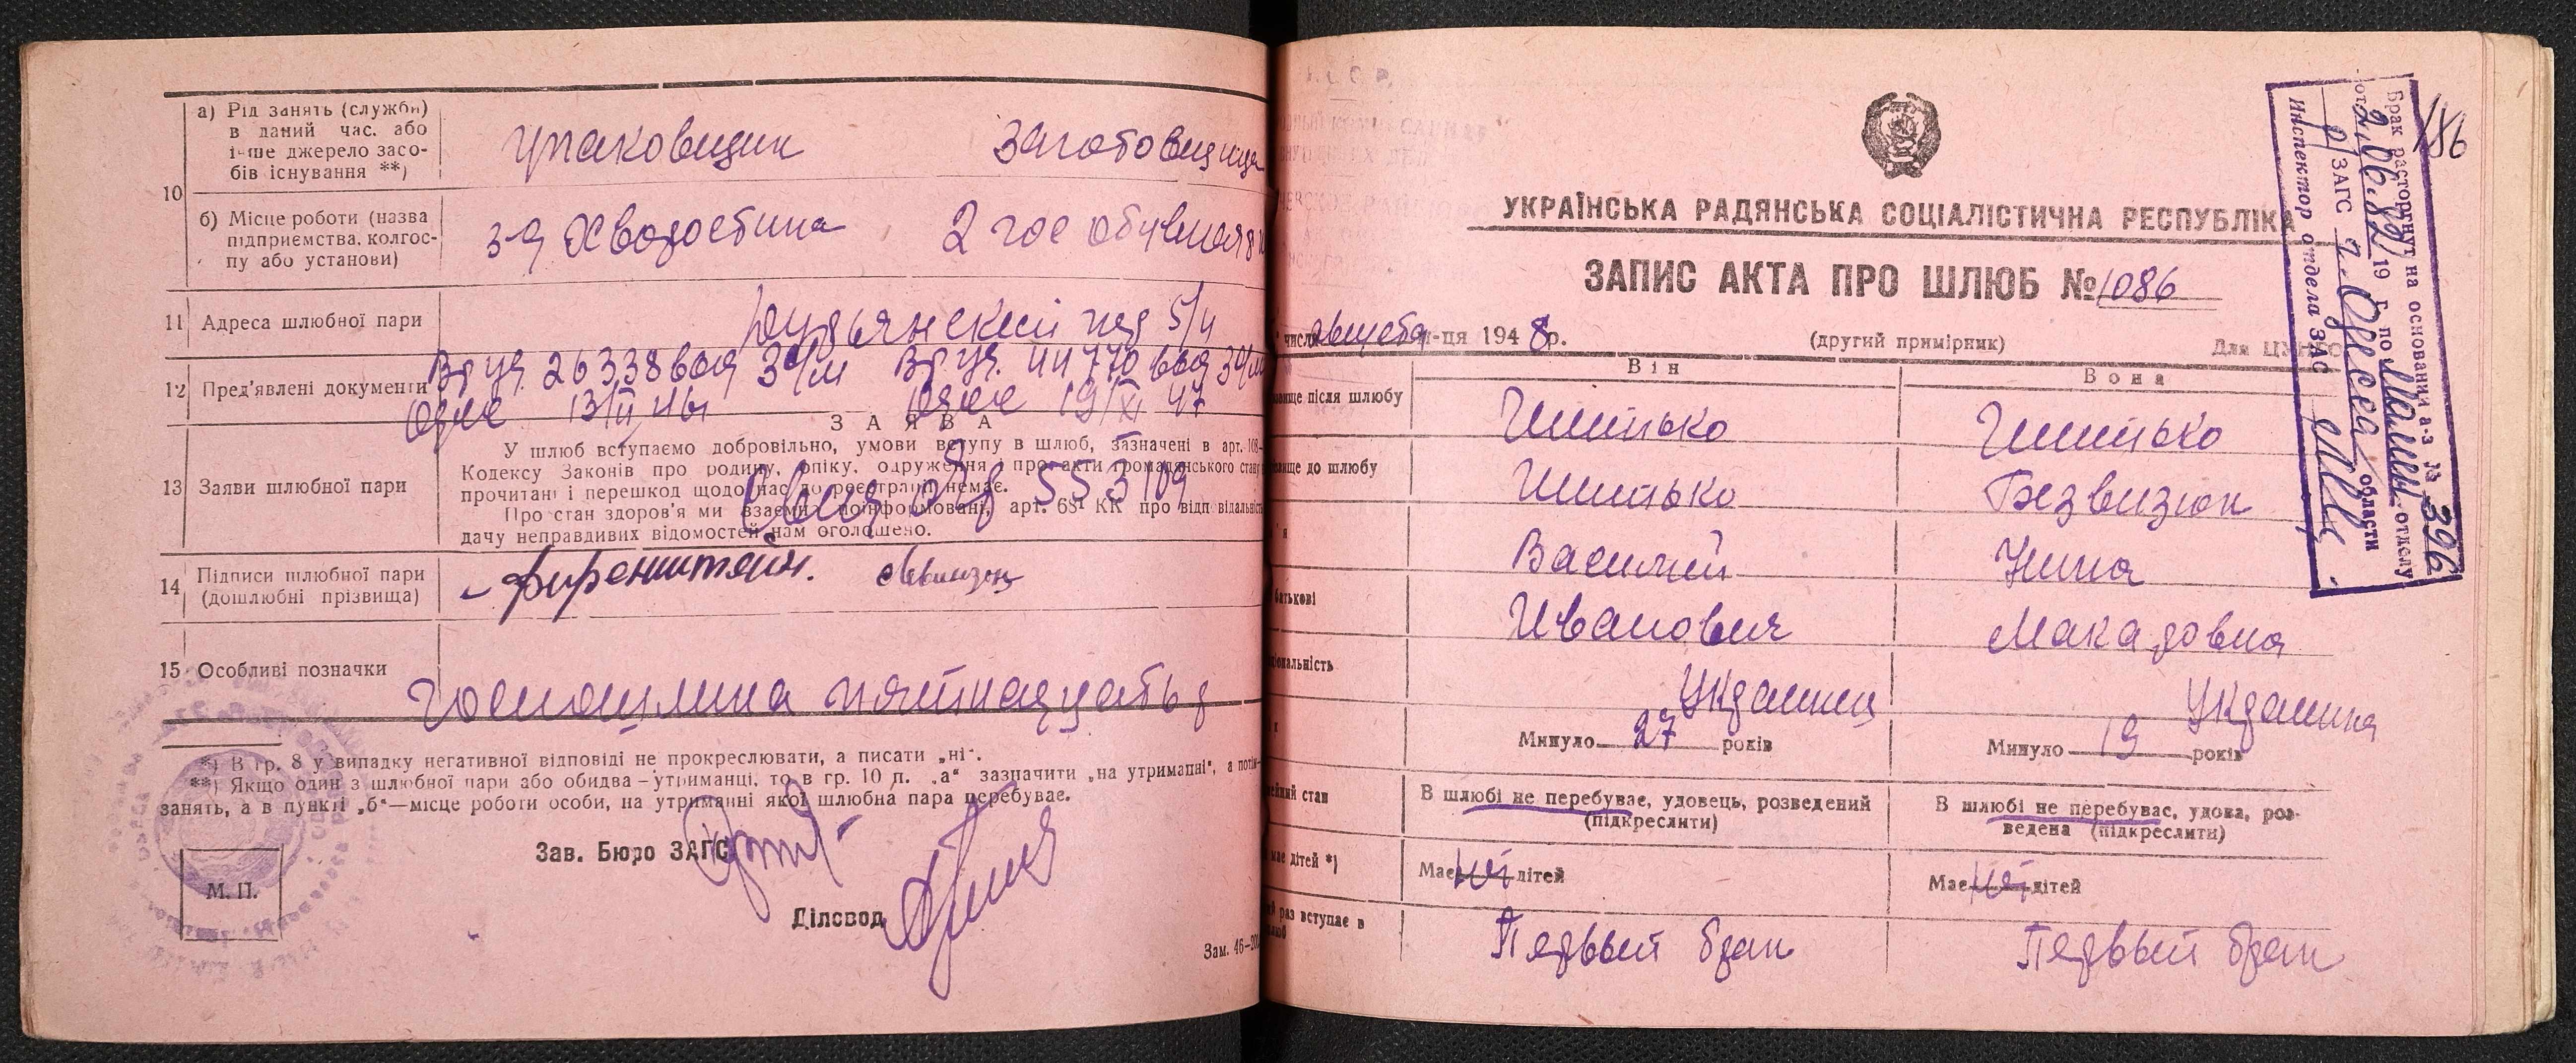 10
а) Рід занять (служби)
в даний час, або
інше джерело засо-
бів існування **)
упаковщик
Заготовщица
б) Місце роботи (назва
підприємства, колгос-
пу або установи)
з-д Хворостина
2 гос обувная
11 Адреса шлюбної пари
пер 5/4
12 Пред'явлені документи
26338 выд 3 о/м
44770 выд 3 о/м
13/II 46
19/XI 47
ЗАЯВА
13 Заяви шлюбної пари
У шлюб вступаємо добровільно, умови вступу в шлюб, зазначені в арт. 108-
Кодексу Законів про родину, опіку, одруження і про акти громадянського стану
прочитані і перешкод щодо нас до реєстрації немає.
Про стан здоров'я ми взаємно поінформовані, арт. 68¹ КК про відповідальність
дачу неправдивих відомостей нам оголошено.
553109
14 Підписи шлюбної пари
(дошлюбні прізвища)
Фиренштейн.
15 Особливі позначки
Госпошлина пятнадцать р
*) В гр. 8 у випадку негативної відповіді не прокреслювати, а писати „ні“.
**) Якщо один з шлюбної пари або обидва – утриманці, то в гр. 10 п. „а“ зазначити „на утриманні“, а потім
занять, а в пункті „б“—місце роботи особи, на утриманні якої шлюбна пара перебуває.
Зав. Бюро ЗАГС
М. П.
Діловод
Зам. 46—
186
УКРАЇНСЬКА РАДЯНСЬКА СОЦІАЛІСТИЧНА РЕСПУБЛІКА
ЗАПИС АКТА ПРО ШЛЮБ № 1086
числа августа м-ця 1948 р.
(другий примірник)
Для ЦУНГС
Він
Вона
вище після шлюбу
Шипько
Шипько
вище до шлюбу
Шипько
Безвизюк
Василий
Нина
батькові
Иванович
Макаровна
ціональність
Украинец
Украинка
Минуло 27 років
Минуло 19 років
ейний стан
В шлюбі не перебуває, удовець, розведений
(підкреслити)
В шлюбі не перебуває, удова, роз-
ведена (підкреслити)
має дітей *)
Має ні дітей
Має ні дітей
раз вступає в
Первый брак
Первый брак
Брак расторгнут на основании а-з № 396
от 2.06.82 19 г. по Малин. отделу
р/ЗАГС г. Одесса области
Инспектор отдела ЗАГС